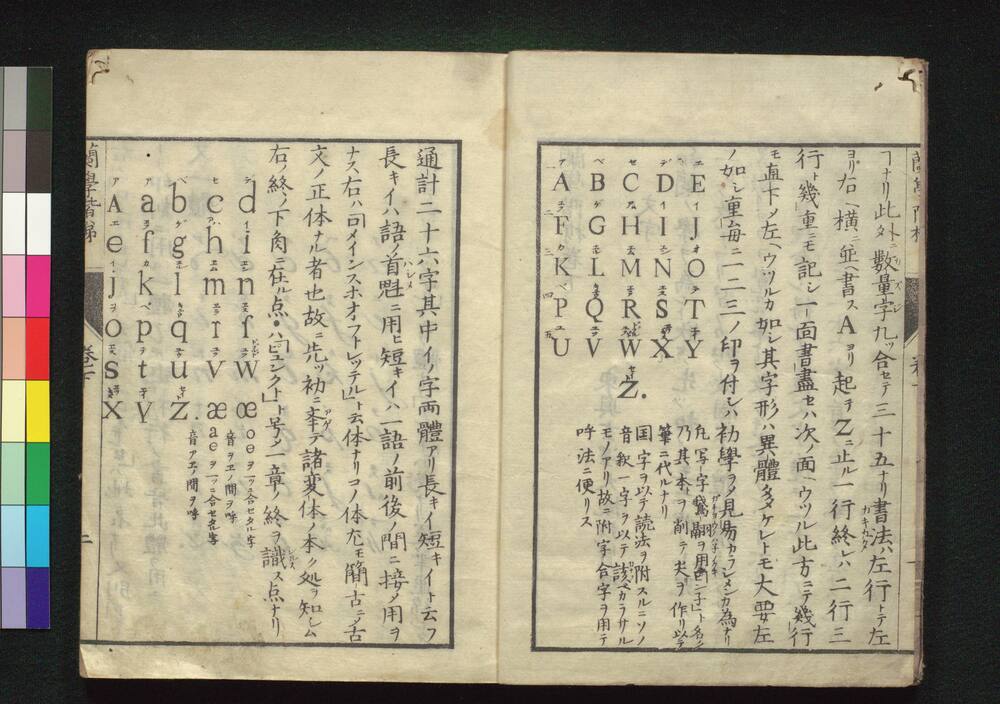 ヿナリ此外ニ數量字九ッ合セテ三十五ナリ書法ハ左行トテ左
ヨリ右ヘ横ニ竝ヘ書スAヨリ起ヲZニ止ル一行終レハ二行三
行ト幾重ニモ記シ一面書盡セハ次ノ面ヘウツル此方ニテ幾行
モ直下メ左ヘウツルカ如シ其字形ハ異體多タケレトモ大要左
ノ如シ重毎ニ一二三ノ印ヲ付シハ初學ヲメ見易カラシメンカ為ナリ
A B C D E
F G H I J
K L M N O
P Q R S T
U V W X Y
Z.
凡写字鵞翮ヲ用
乃其本ヲ削テ尖ヲ作リ以テ
筆ニ代ルナリ
国字ヲ以テ読法ヲ附スルニソノ
音叙一字ヲ以テ該ヘカラサル
モノアリ故ニ附字合字ヲ用テ
呼法ニ便リス
蘭學階梯
卷下
通計二十六字其中イノ字両體アリ長キイ短キイト云フ
長キイハ語ノ首魁ニ用ヒ短キイハ一語ノ前後ノ間ニ接メ用ヲ
ナス右ハ「ロメインスホオフトレッテル」ト云体ナリコノ体尤モ簡古ニノ古
文ノ正体ナル者也故ニ先ッ初ニ挙テ諸変体ノ本ク処ヲ知シム
右ノ終ノ下角ニ在ル点・ハ「ピュンクト」ト号メ一章ノ終ヲ識ス点ナリ
A a b c d
e f g h i
j k l m n
o p q r ſ
s t u v w
x y z. æ œ
oeヲ一ッニ合セタル字
音ヲヱノ間ヲ呼
aeヲ一ッニ合セタル字
音アヱノ間ヲ呼